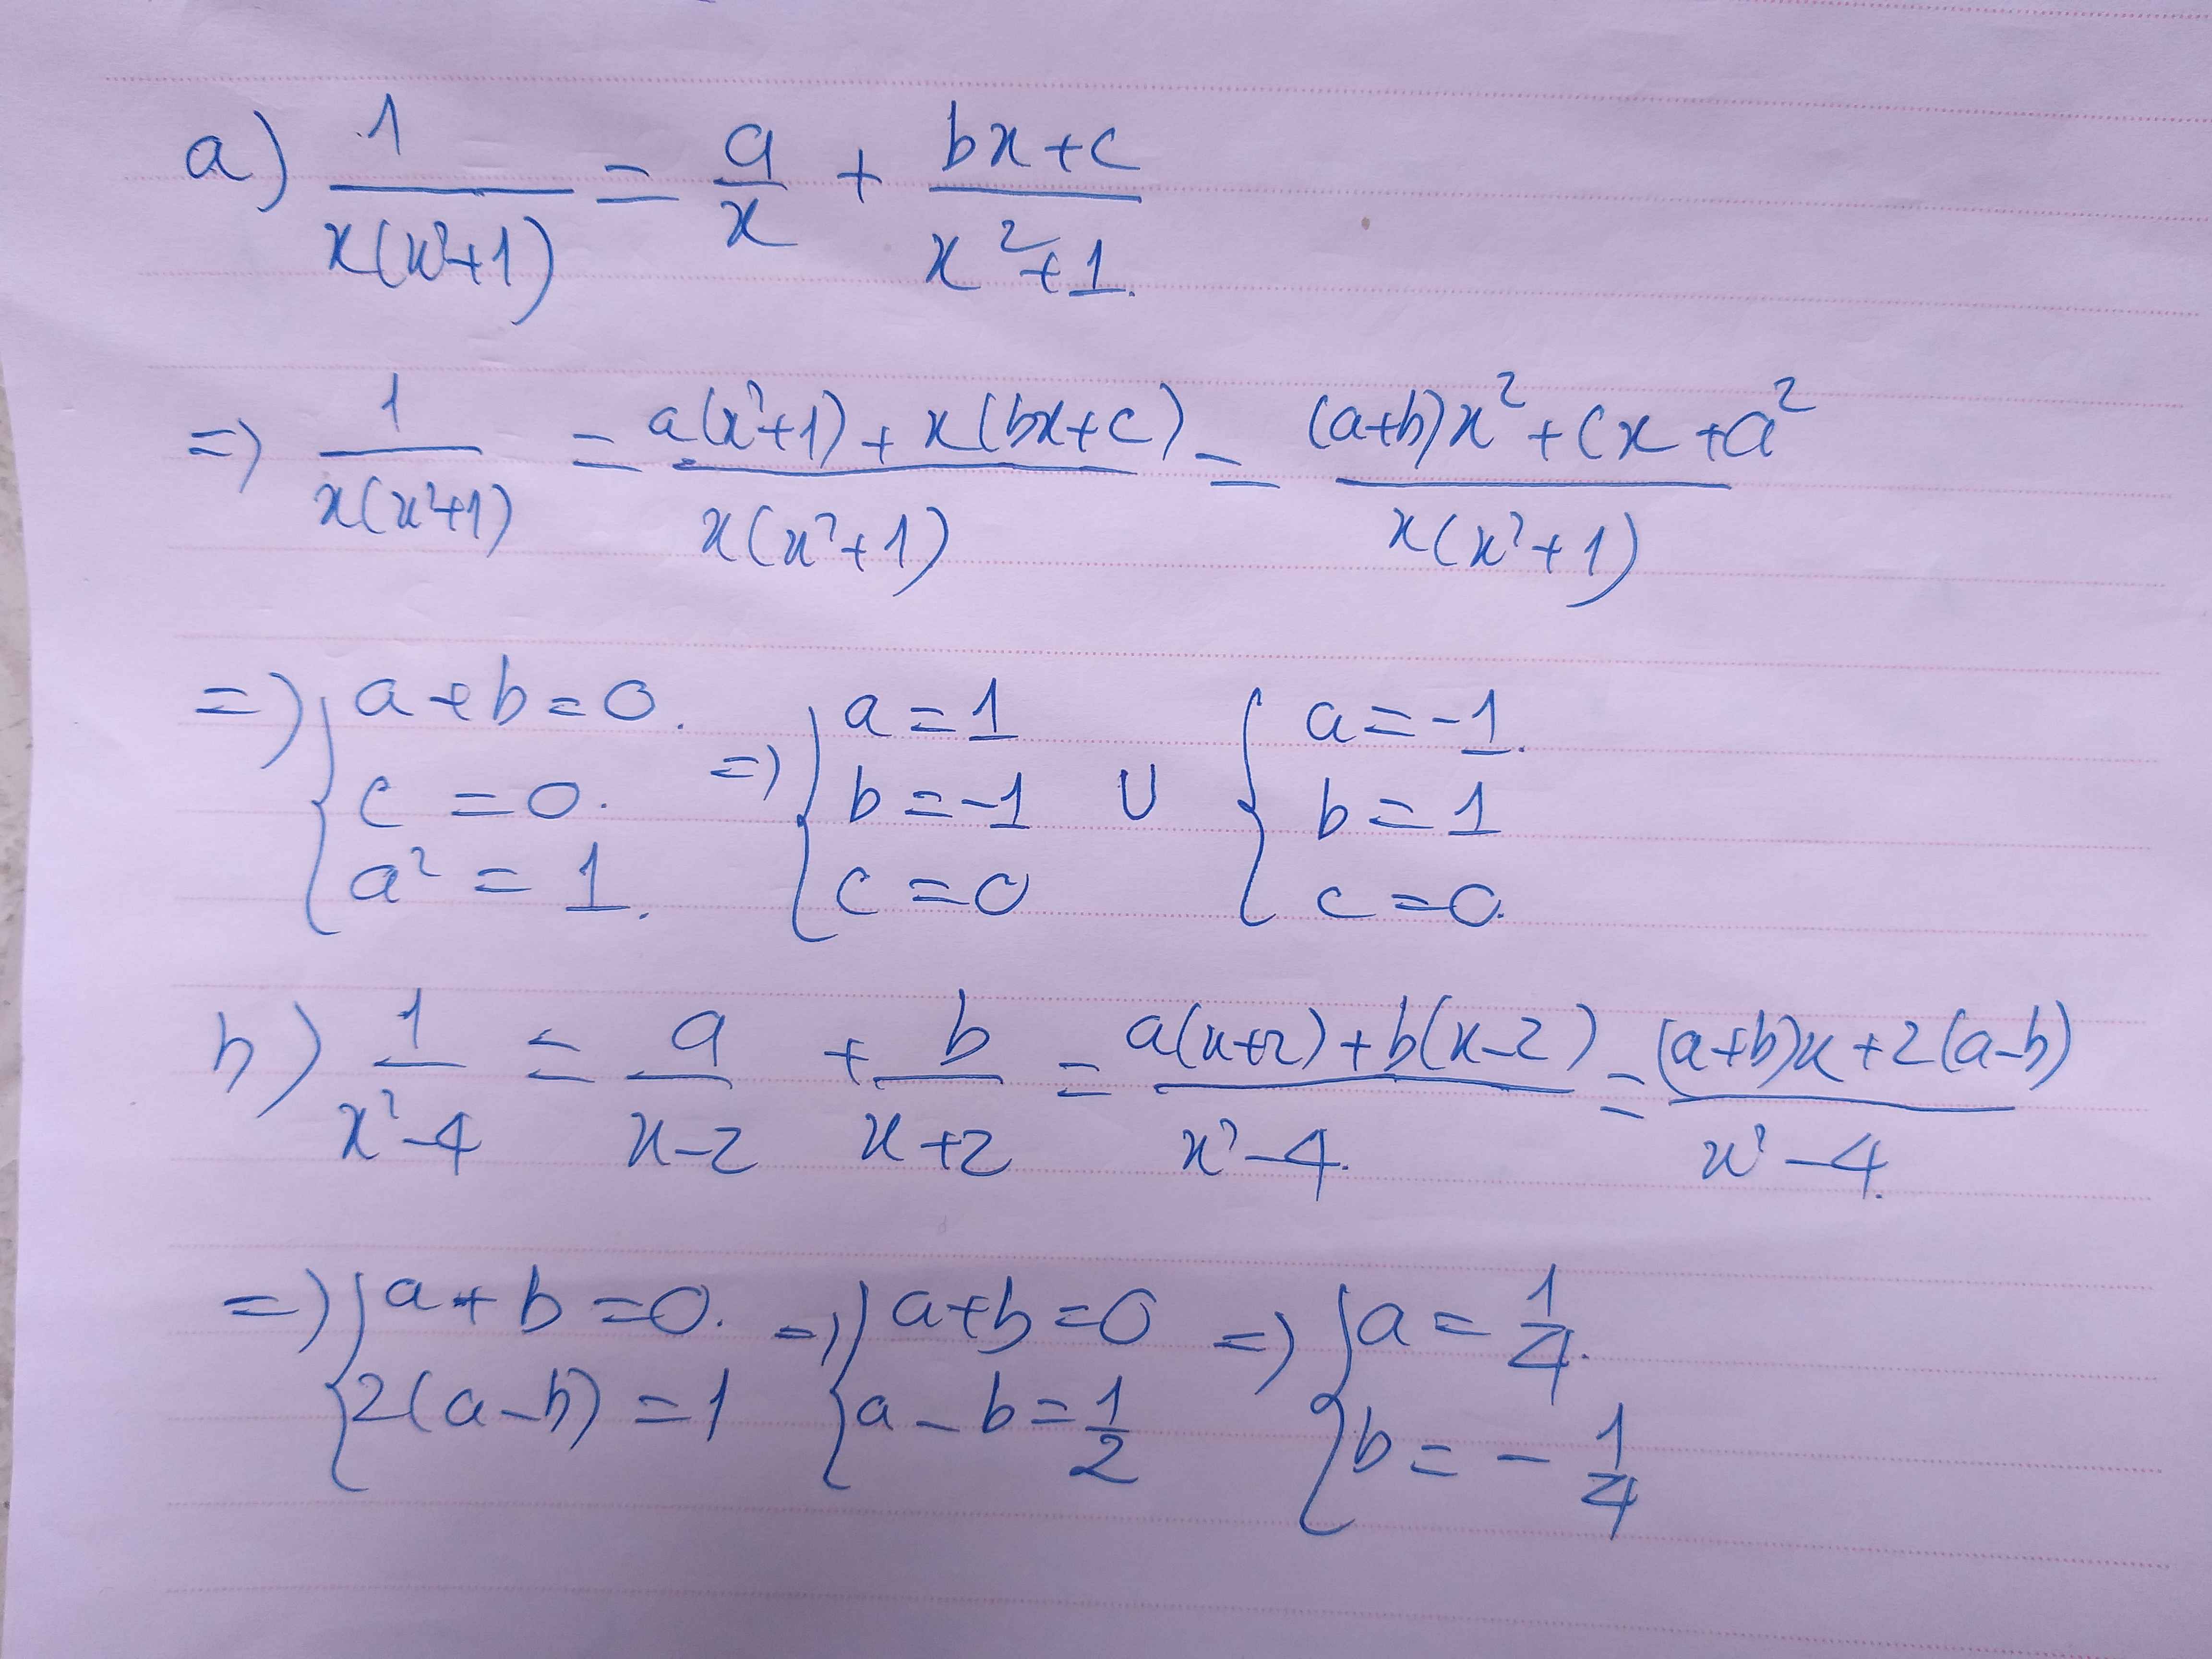 a) 1/(x(x²+1)) = a/x + (bx+c)/(x²+1).
=> 1/(x(x²+1)) = (a(x²+1) + x(bx+c))/(x(x²+1)) = ((a+b)x² + cx + a²)/(x(x²+1))
=> { a+b=0. c=0. a²=1. => { a=1 b=-1 c=0 ∪ { a=-1. b=1 c=0.
b) 1/(x²-4) = a/(x-2) + b/(x+2) = (a(x+2)+b(x-2))/(x²-4.) = ((a+b)x+2(a-b))/(x²-4.)
=> { a+b=0. 2(a-b)=1 => { a+b=0 a-b=1/2 => { a=1/4. b=-1/4